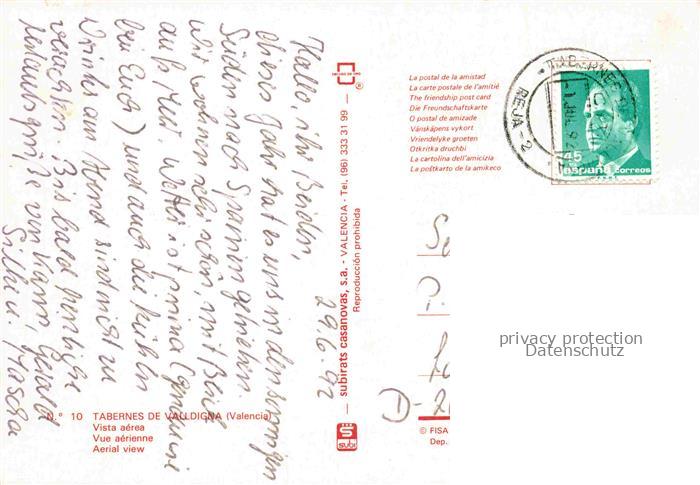 29.6.92
Hallo, ihr Beiden,
dieses Jahr hat es uns in den sonnigen
Süden nach Spanien getrieben.
Wir wohnen sehr schön, mit Blick
aufs Meer. Wetter ist prima (genau wie
bei Euch) und auch die kühlen
Drinks am Abend sind nicht zu
verachten. Bis bald herzliche
Urlaubsgrüße von Karin, Gerald
Silke u. Mascha
N.º 10 TABERNES DE VALLDIGNA (Valencia)
Vista aérea
Vue aérienne
Aerial view
subirats casanovas, s.a. - VALENCIA - Tel. (96) 333 31 99
Reproducción prohibida
subi
®
La postal de la amistad
La carte postale de l'amitié
The friendship post card
Die Freundschaftskarte
O postal de amizade
Vänskápens vykort
Vriendelyke groeten
Otkritka druchbi
La cartolina dell'amicizia
La poŝtkarto de la amikeco
REJA-2
1 JUL. 92
45
españa correos
D-2
privacy protection
Datenschutz
© FISA
Dep.